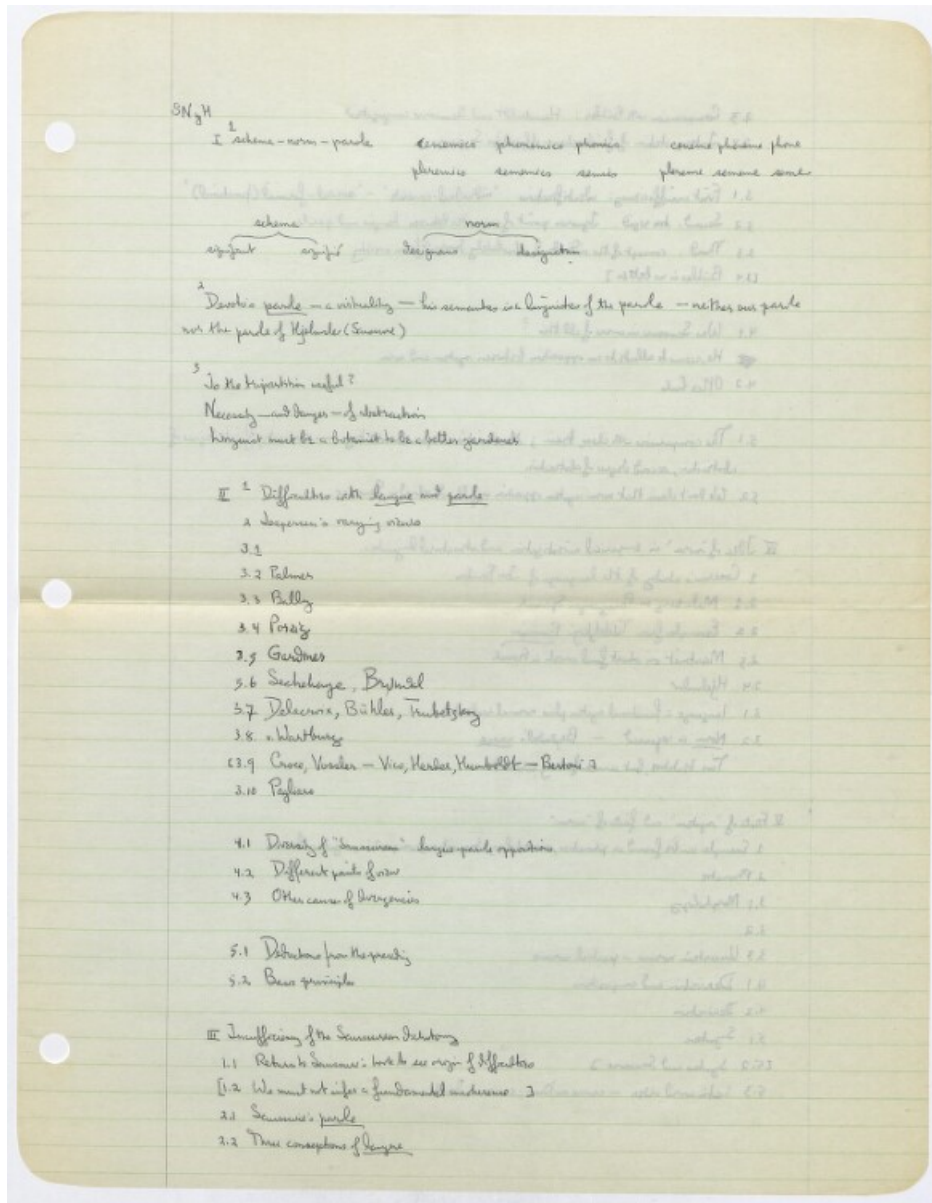 SNyH
I 1 scheme – norm – parole cenemics phonemics phonics ceneme phoneme phone
pleremics sememics semics plereme sememe seme
scheme norm
signifiant signifié designans designatum
2 Devoto's parole — a virtuality — his semantics is a linguistics of the parole — neither our parole
nor the parole of Hjelmslev (Saussure)
3 Is the tripartition useful?
Necessity – and danger – of abstraction
Linguist must be a botanist to be a better gardener
II 1 Difficulties with langue and parole
2 Jespersen's varying views
3.1
3.2 Palmer
3.3 Bally
3.4 Porzig
3.5 Gardiner
3.6 Sechehaye, Brøndal
3.7 Delacroix, Bühler, Trubetzkoy
3.8 v. Wartburg
[3.9 Croce, Vossler — Vico, Herder, Humboldt — Bertoni]
3.10 Pagliaro
4.1 Diversity of "Saussurean" langue parole opposition
4.2 Different points of view
4.3 Other causes of divergencies
5.1 Deductions from the preceding
5.2 Basic principles
III Insufficiency of the Saussurean dichotomy
1.1 Return to Saussure's book to see origin of difficulties
[1.2 We must not infer a fundamental incoherence]
2.1 Saussure's parole
2.2 Three conceptions of langue